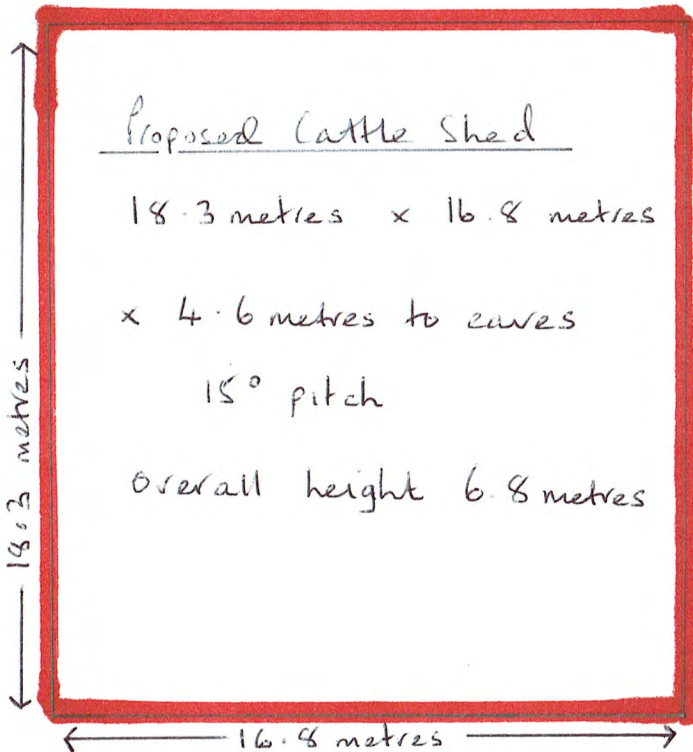 Proposed Cattle Shed
18.3 metres x 16.8 metres
x 4.6 metres to eaves
15° pitch
overall height 6.8 metres
18.3 metres
16.8 metres